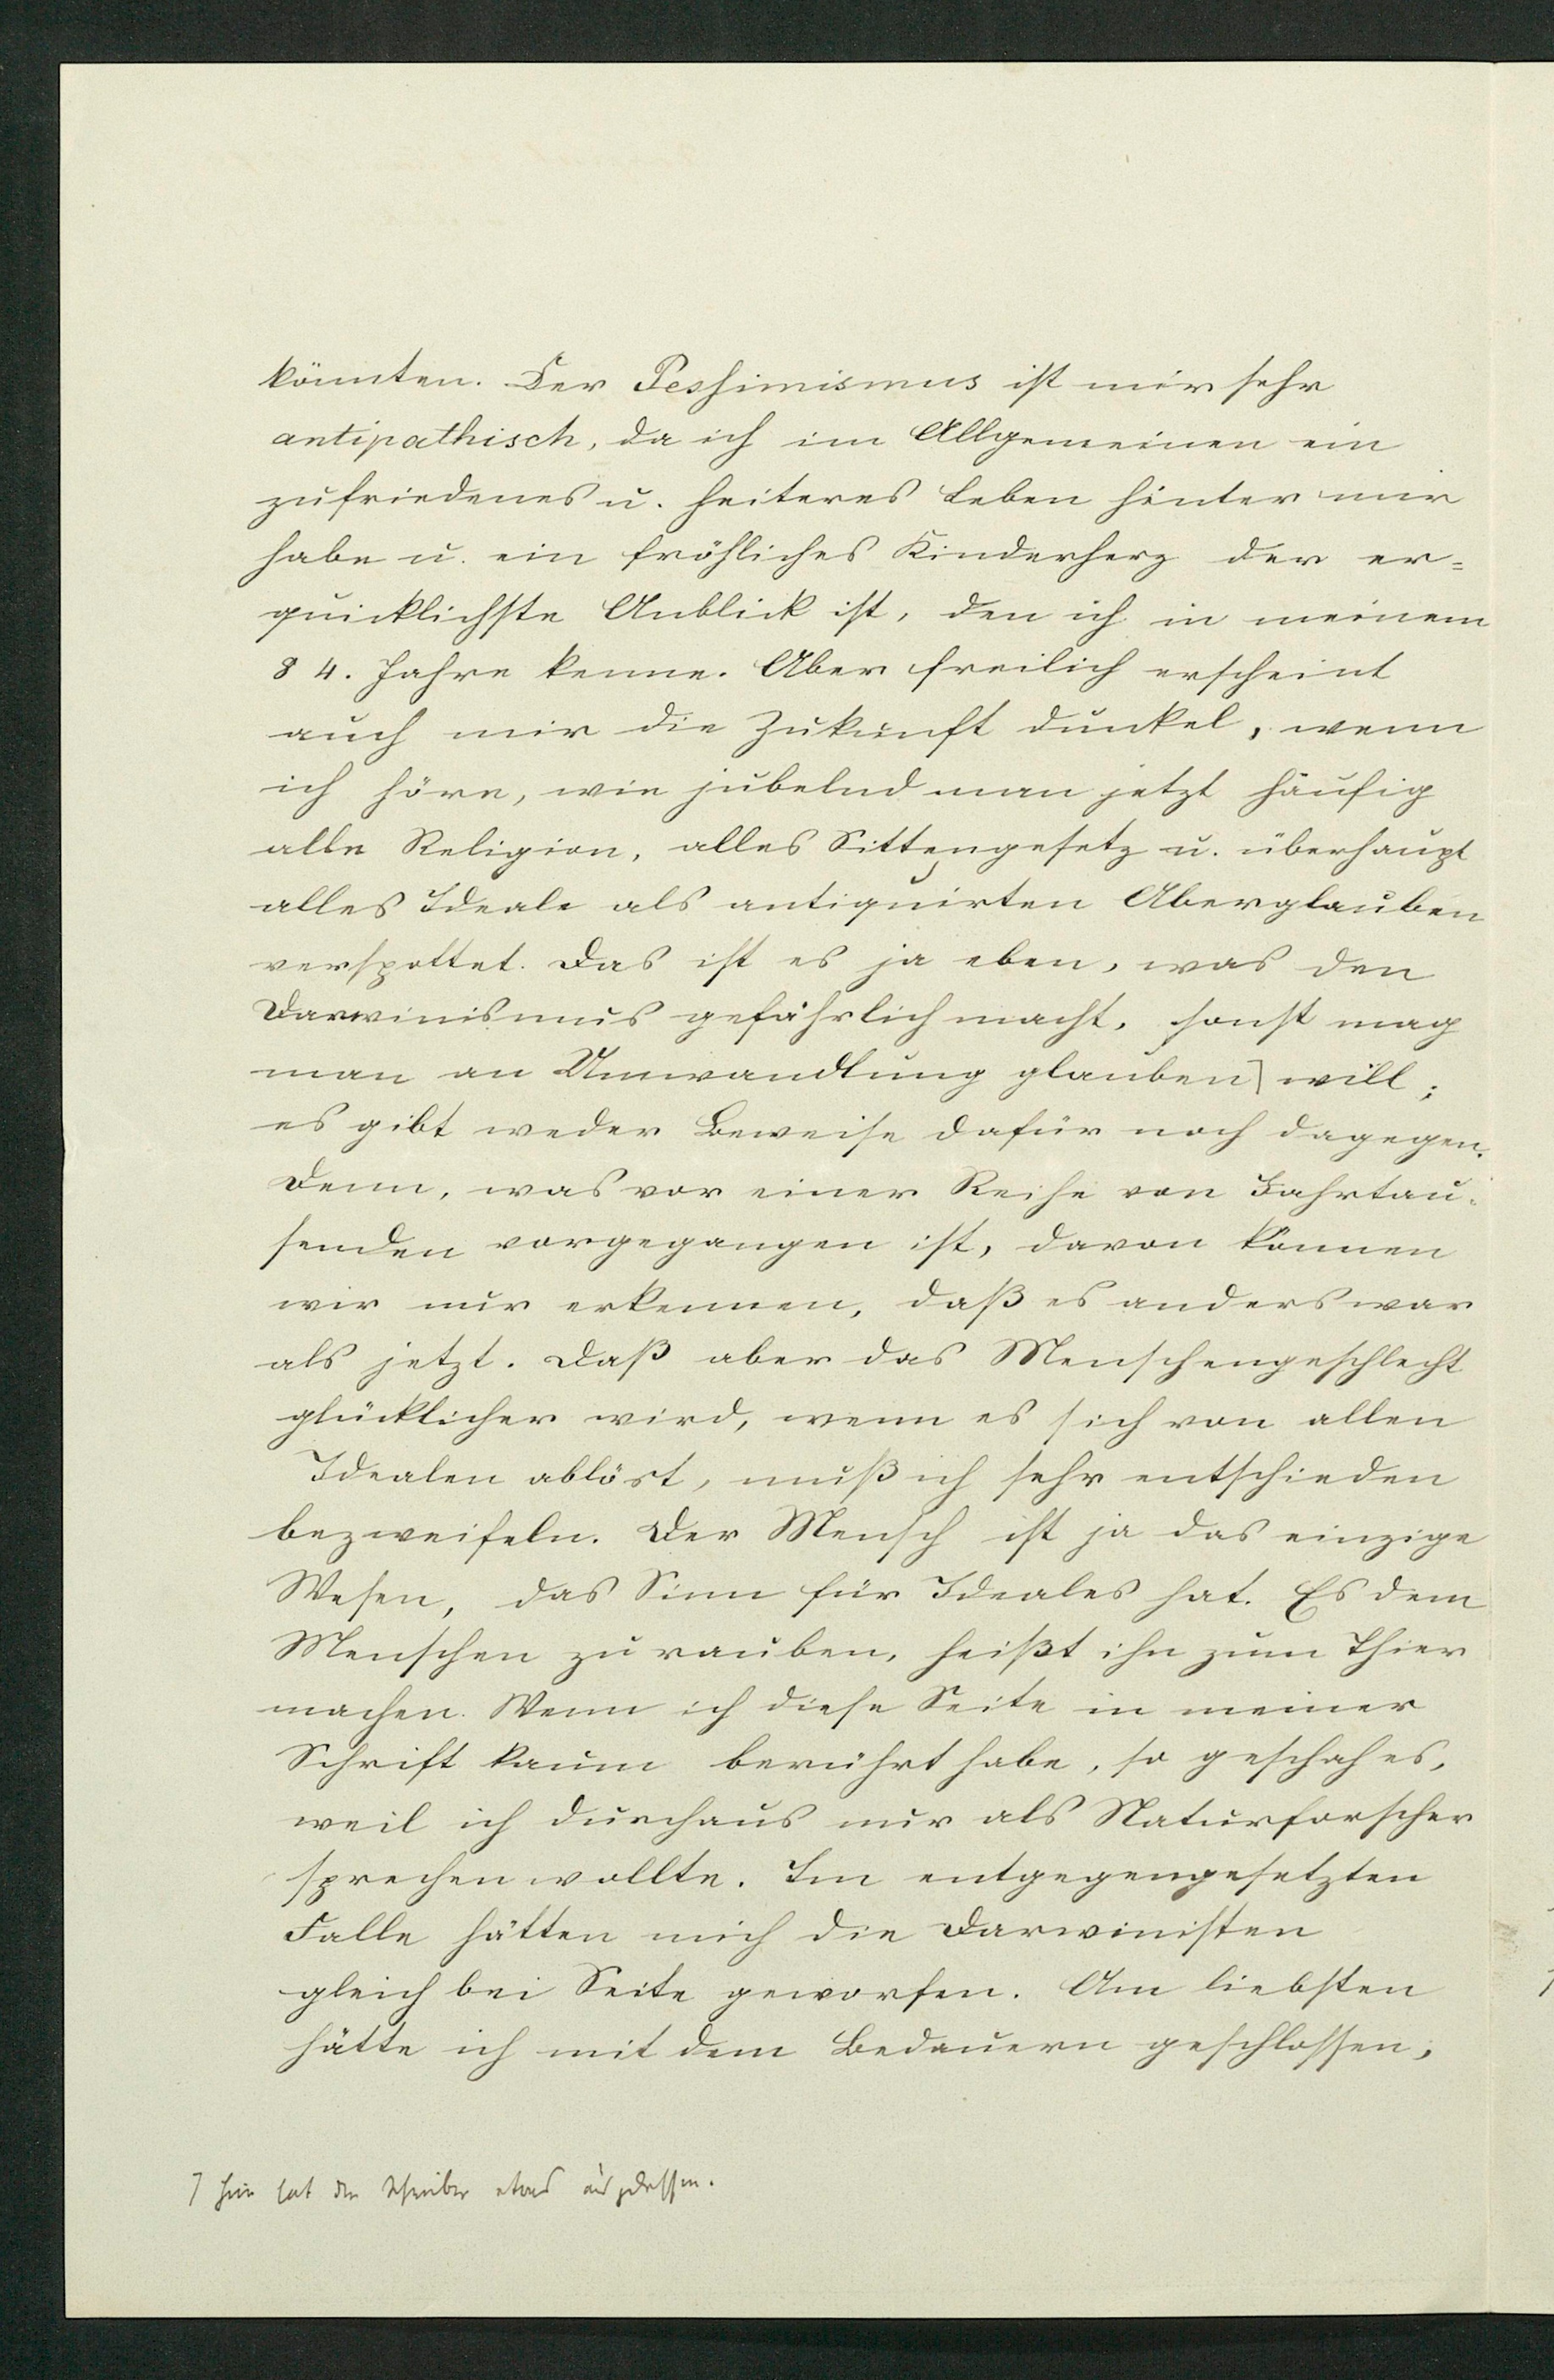 könnten. Der Pessimismus ist mir sehr
antipathisch, da ich im Allgemeinen ein
zufriedenes u. heiteres Leben hinter mir
habe u. ein fröhliches Kinderherz der er=
quicklichste Anblick ist, den ich in meinem
84. Jahre kenne. Aber freilich erscheint
auch mir die Zukunft dunkel, wenn
ich höre, wie jubelnd man jetzt häufig
alle Religion, alles Sittengesetz u. überhaupt
alles Ideale als antiquirten Aberglauben
verspottet. Das ist es ja eben, was den
Darwinismus gefährlich macht, sonst mag
man an Umwandlung glauben⌉ will;
es gibt weder Beweise dafür noch dagegen.
Denn, was vor einer Reihe von Jahrtau-
senden vorgegangen ist, davon können
wir nur erkennen, daß es anders war
als jetzt. Daß aber das Menschengeschlecht
glücklicher wird, wenn es sich von allen
Idealen ablöst, muß ich sehr entschieden
bezweifeln. Der Mensch ist ja das einzige
Wesen, das Sinn für Ideales hat. Es dem
Menschen zu rauben, heißt ihn zum Thier
machen. Wenn ich diese Seite in meiner
Schrift kaum berührt habe, so geschah es,
weil ich durchaus nur als Naturforscher
sprechen wollte. Im entgegengesetzten
Falle hätten mich die Darwinisten
gleich bei Seite geworfen. Am liebsten
hätte ich mit dem Bedauern geschlossen,
⌉ hier hat der Schreiber etwas ausgelassen.